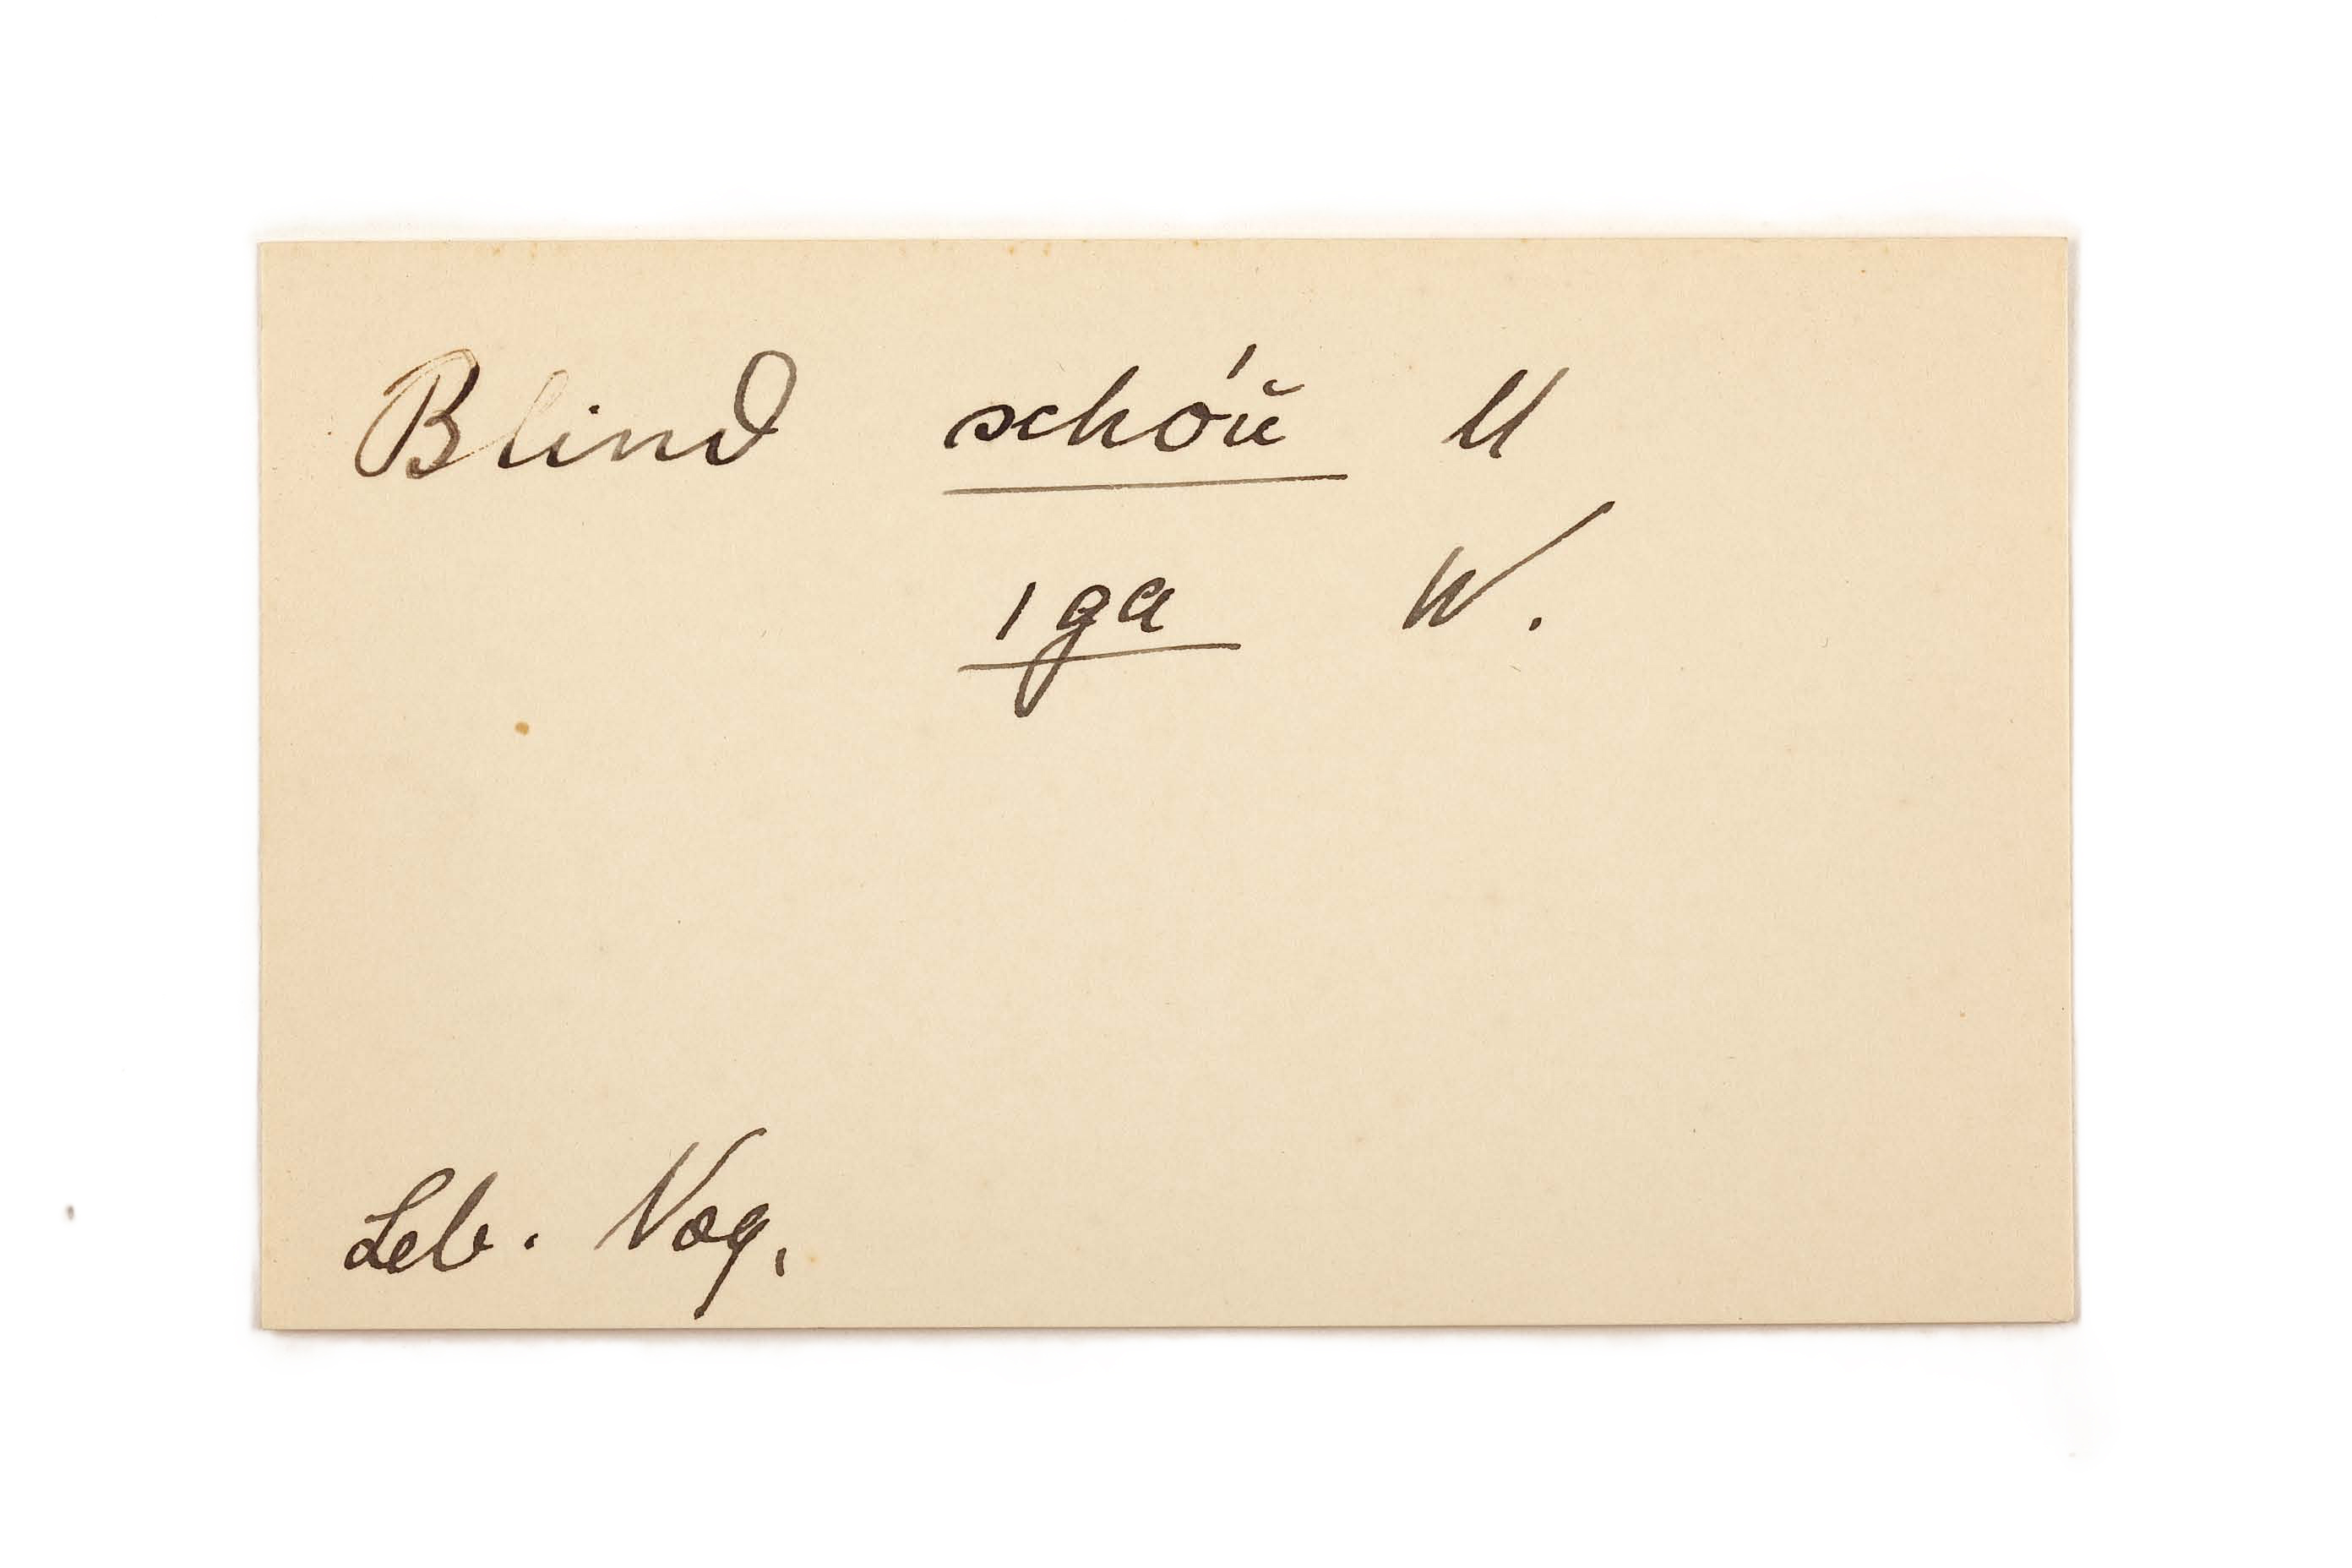 Blind schóŭ U
iga W.
Leb. Vog.